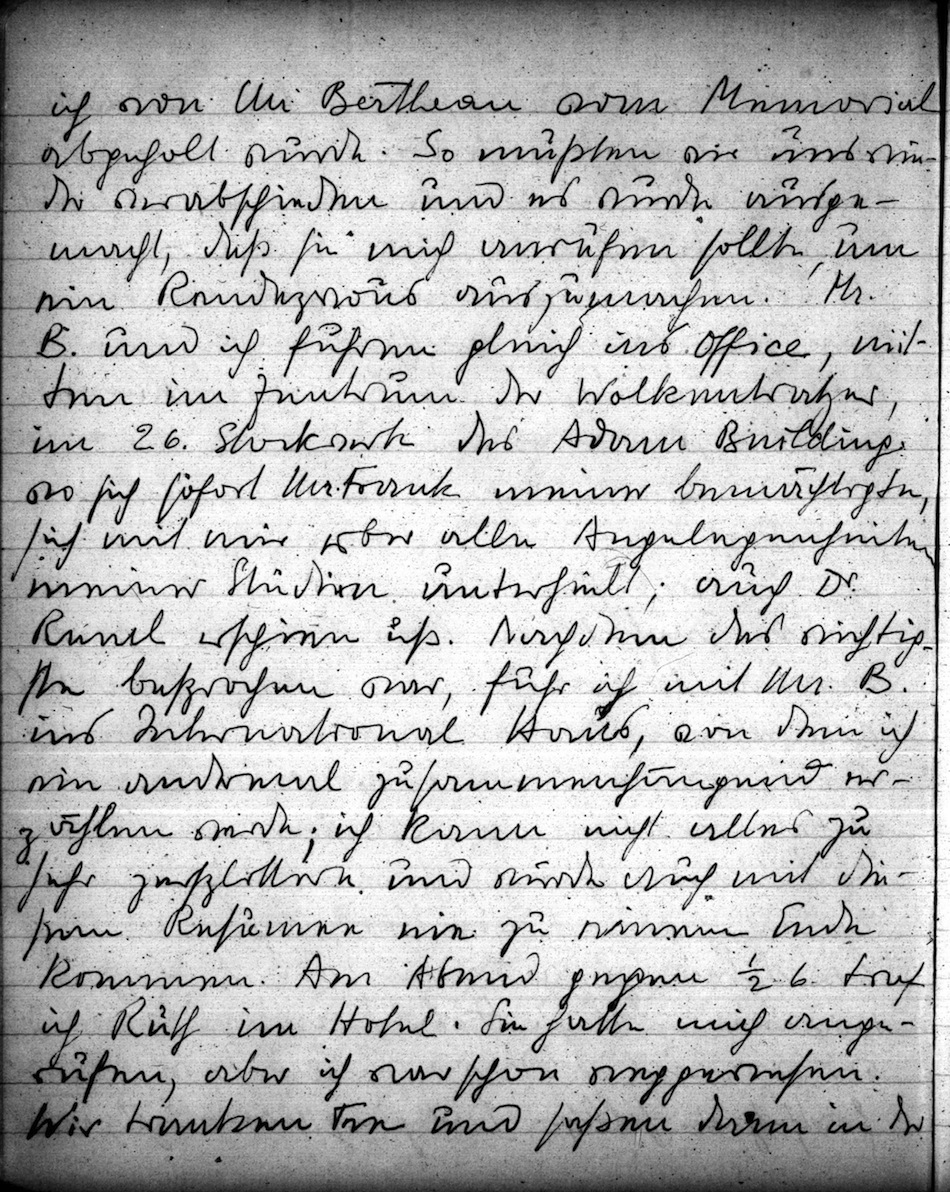 ich von Mr Bertheau vom Memorial
abgeholt wurde. So mußten wir uns wie-
der verabschieden und es wurde ausge-
macht, daß sie mich anrufen sollte, um
ein Rendezvous auszumachen. Mr.
B. und ich fuhren gleich ins Office, mit-
ten im Zentrum der Wolkenkratzer,
im 26. Stockwerk des Adam Building.
wo sich sofort Mr. Frank meiner bemächtigte,
sich mit mir über alle Angelegenheiten
meiner Studien unterhielt; auch Dr.
erschien Nachdem das wichtig-
ste besprochen war, fuhr ich mit Mr. B.
ins International Haus, von dem ich
ein andermal zusammenhängend er-
zählen werde; ich kann nicht alles zu
sehr zersplittern und würde auch mit die-
sem Resümee nie zu einem Ende
kommen. Am Abend gegen ½ 6 traf
ich Ruth im Hotel. Sie hatte mich ange-
rufen, aber ich war schon weggewesen.
Wir tranken Tee und saßen dann in der